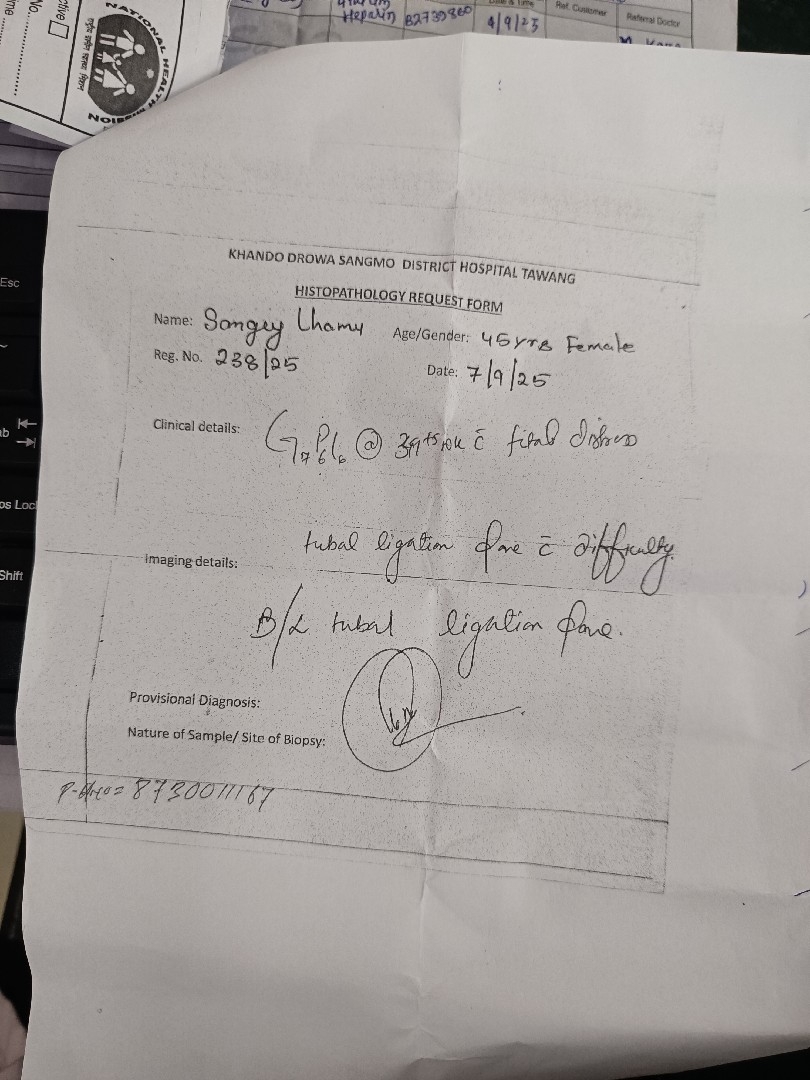 NATIONAL HEALTH MISSION
ctive
No.
Heparin B2739860
4/9/25
Ref. Customer
Referral Doctor
Esc
ab
os Loc
Shift
KHANDO DROWA SANGMO DISTRICT HOSPITAL TAWANG
HISTOPATHOLOGY REQUEST FORM
Name: Sangey Lhamu Age/Gender: 45 yrs Female
Reg. No. 238/25 Date: 7/9/25
Clinical details: G7P6L6 @ 39+5 wk c̄ fital distress
tubal ligation done c̄ difficulty.
Imaging details:
B/L tubal ligation done.
Provisional Diagnosis:
Nature of Sample/ Site of Biopsy:
8730011167